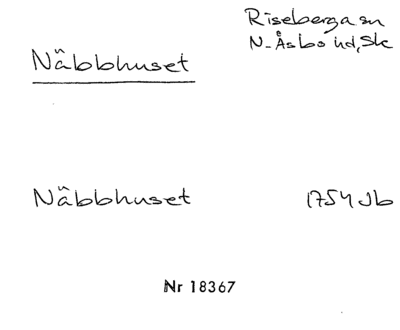 Riseberga sn
N. Åsbo hd, Sk
Näbbhuset
Näbbhuset 1754 Jb
Nr 18367